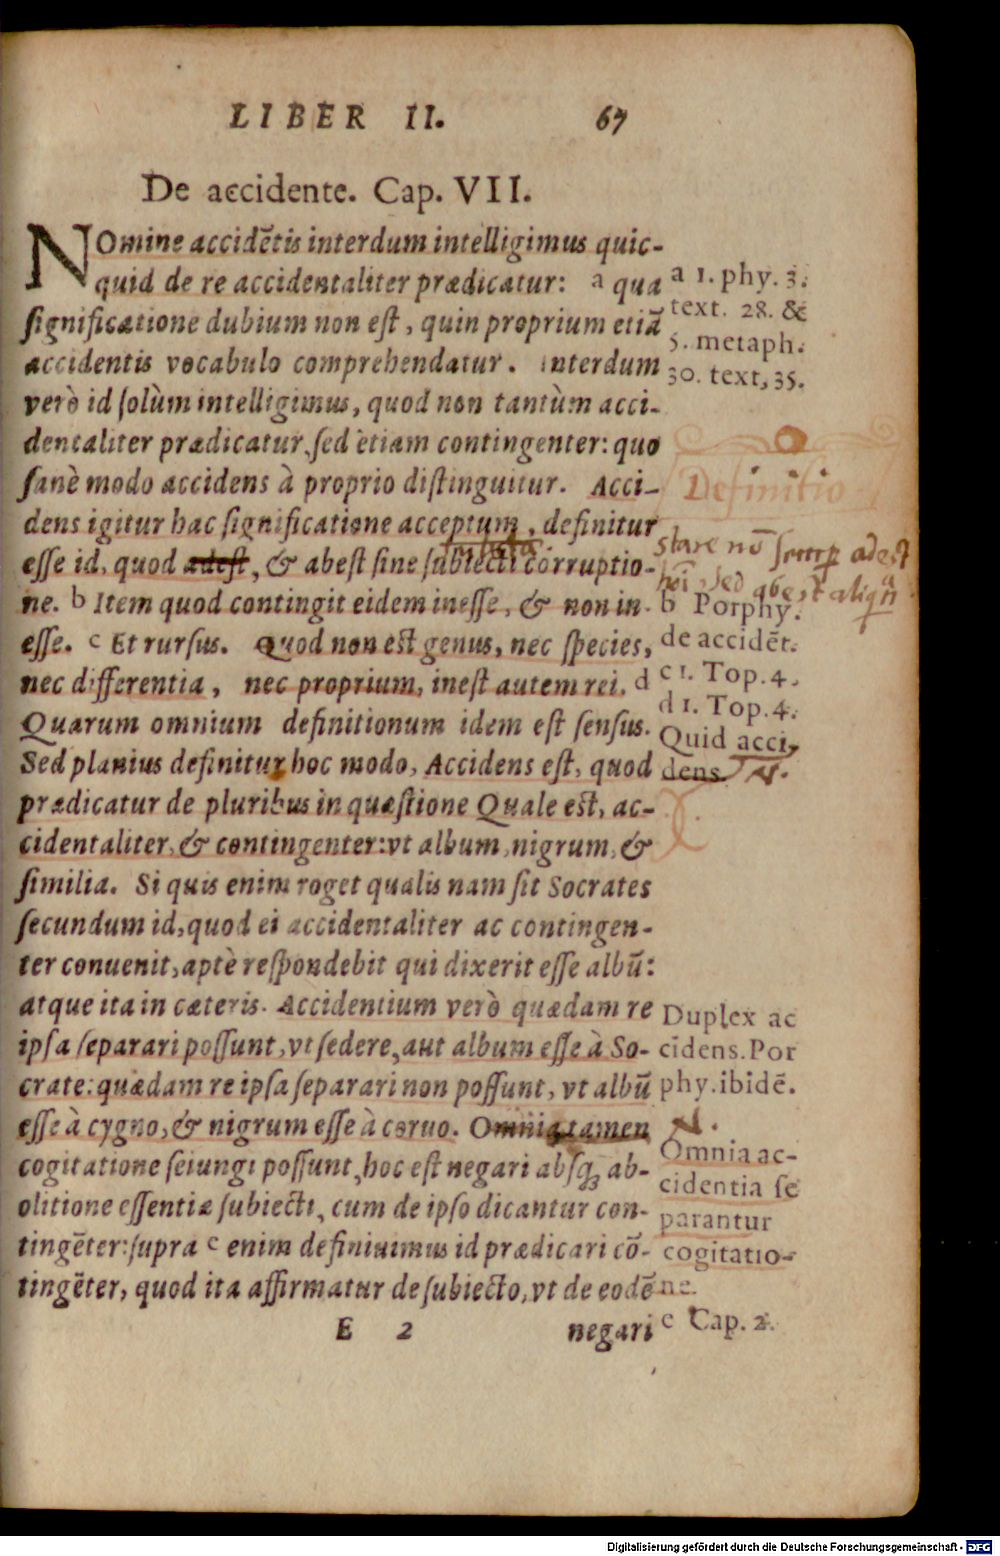 LIBER II. 67
De accidente. Cap. VII.
NOmine accidẽtis interdum intelligimus quic-
quid de re accidentaliter prædicatur: a qua
significatione dubium non est, quin proprium etiã
accidentis vocabulo comprehendatur. Interdum
verò id solùm intelligimus, quod non tantùm acci-
dentaliter prædicatur, sed etiam contingenter: quo
sanè modo accidens à proprio distinguitur. Acci-
dens igitur hac significatione acceptum, definitur
esse id, quod adest, & abest sine subiecti corruptio-
ne. b Item quod contingit eidem inesse, & non in-
esse. c Et rursus. Quod non est genus, nec species,
nec differentia, nec proprium, inest autem rei. d
Quarum omnium definitionum idem est sensus.
Sed planius definitur hoc modo, Accidens est, quod
prædicatur de pluribus in quæstione Quale est, ac-
cidentaliter, & contingenter: vt album, nigrum, &
similia. Si quis enim roget qualis nam sit Socrates
secundum id, quod ei accidentaliter ac contingen-
ter conuenit, aptè respondebit qui dixerit esse albũ:
atque ita in cæteris. Accidentium verò quædam re
ipsa separari possunt, vt sedere, aut album esse à So-
crate: quædam re ipsa separari non possunt, vt albũ
esse à cygno, & nigrum esse à coruo. Omnia tamen
cogitatione seiungi possunt, hoc est negari absq; ab-
olitione essentiæ subiecti, cum de ipso dicantur con-
tingẽter: supra e enim definiuimus id prædicari cõ-
tingẽter, quod ita affirmatur de subiecto, vt de eodẽ
E 2 negari
a 1. phy. 3.
text. 28. &
5. metaph.
30. text, 35.
Definitio
adest
sed abest
b Porphy.
de accidẽt.
c 1. Top. 4.
d 1. Top. 4.
Quid acci,
dens
Duplex ac
cidens. Por
phy. ibidẽ.
Omnia ac-
cidentia se
parantur
cogitatio-
ne.
e Cap. 2.
Digitalisierung gefördert durch die Deutsche Forschungsgemeinschaft - DFG